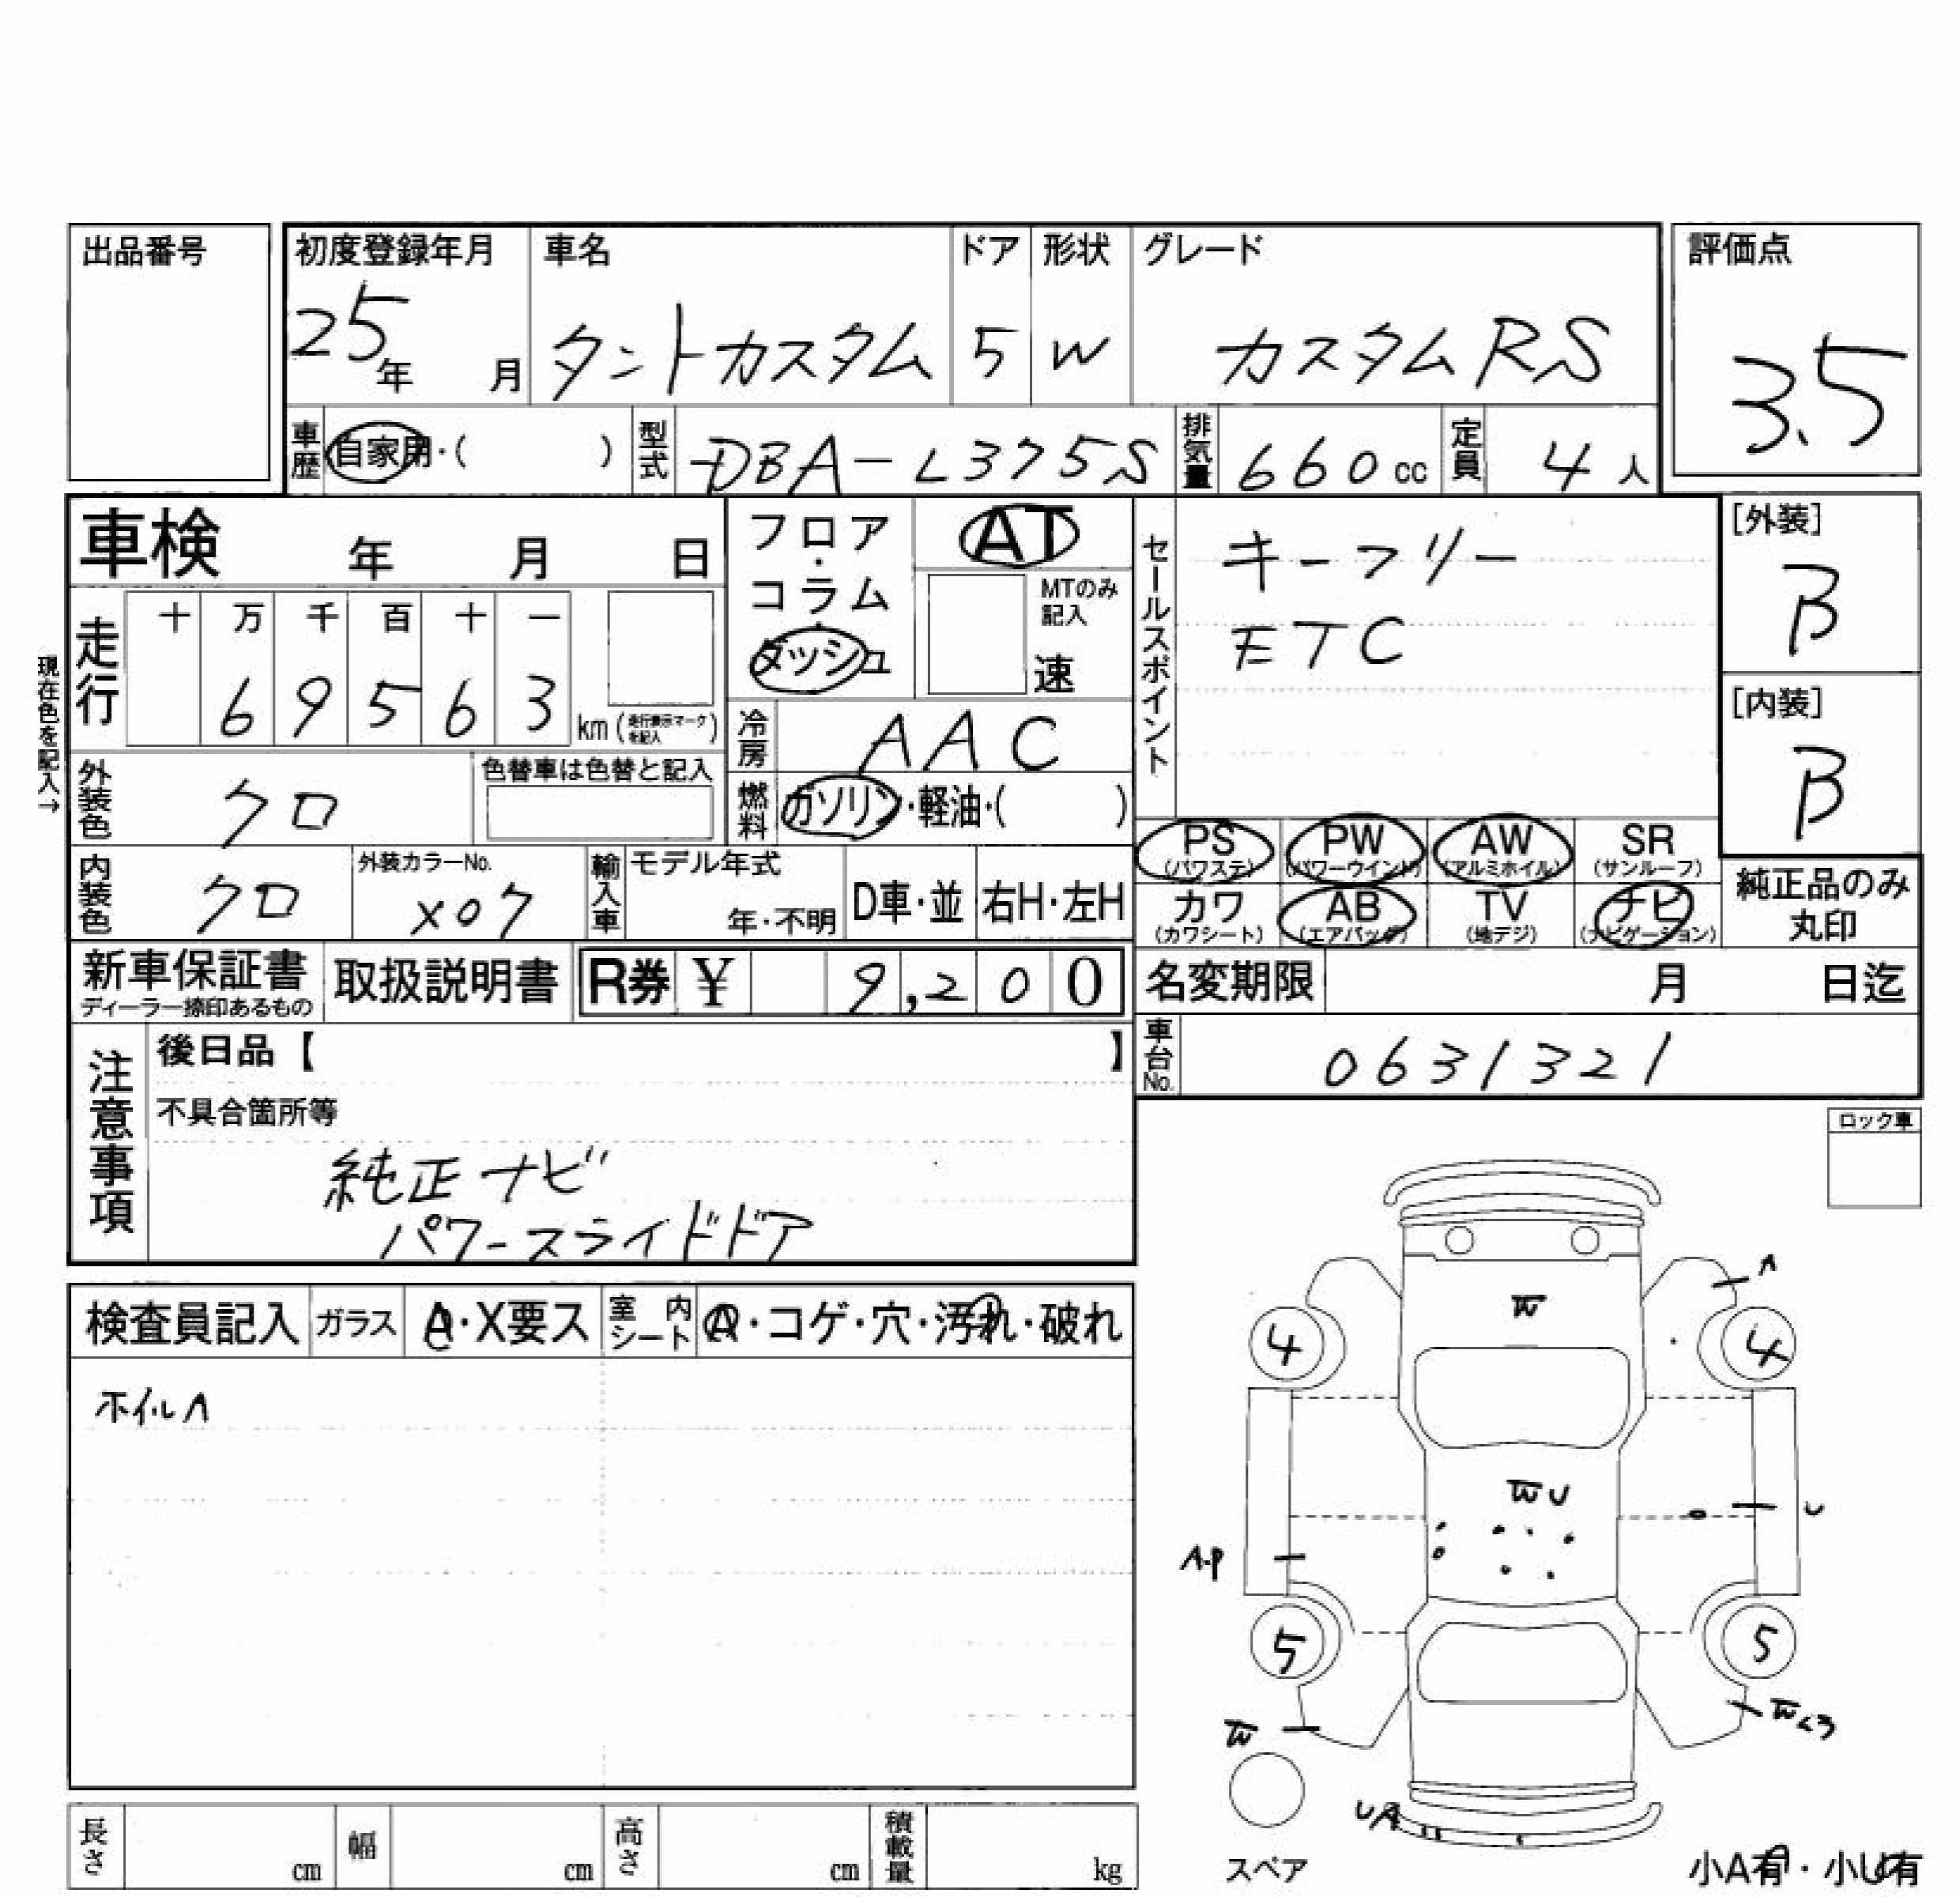 出品番号
初度登録年月 車名 ドア 形状 グレード 評価点
25年 月 タントカスタム 5 W カスタムRS 3.5
車歴 自家用・( ) 型式 DBA-L375S 排気量 660cc 定員 4人
車検 年 月 日
フロア・コラム・ダッシュ
AT
MTのみ記入
速
セールスポイント
キーフリー
ETC
[外装]
B
[内装]
B
現在色を記入→
走行 十 万 千 百 十 一
6 9 5 6 3 km (走行表示マークを記入)
冷房 AAC
外装色 クロ 色替車は色替と記入
燃料 ガソリン・軽油・( )
PS (パワステ) PW (パワーウインド) AW (アルミホイル) SR (サンルーフ)
カワ (カワシート) AB (エアバッグ) TV (地デジ) ナビ (ナビゲーション)
純正品のみ丸印
内装色 クロ 外装カラーNo. X07 輸入車 モデル年式 年・不明 D車・並 右H・左H
新車保証書 ディーラー捺印あるもの 取扱説明書 R券 ¥ 9,200
名変期限 月 日迄
車台No. 0631321
注意事項
後日品【 】
不具合箇所等
純正ナビ
パワースライドドア
ロック車
検査員記入 ガラス A・X要ス 室内シート A・コゲ・穴・汚れ・破れ
ホイルA
A
W
4 4
W U
U
A・P
5 5
W
W
UA
スペア
小A有・小U有
長さ cm 幅 cm 高さ cm 積載量 kg